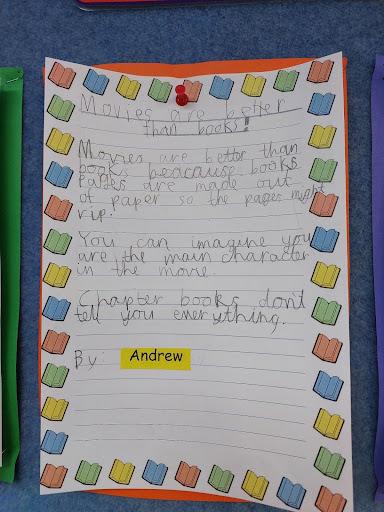 Movies are better
than books!
Movies are better than
books beacause books
Pages are made out
of paper so the pages might
rip.
You can imagine you
are the main character
in the movie.
Chapter books don't
tell you everything.
By: Andrew